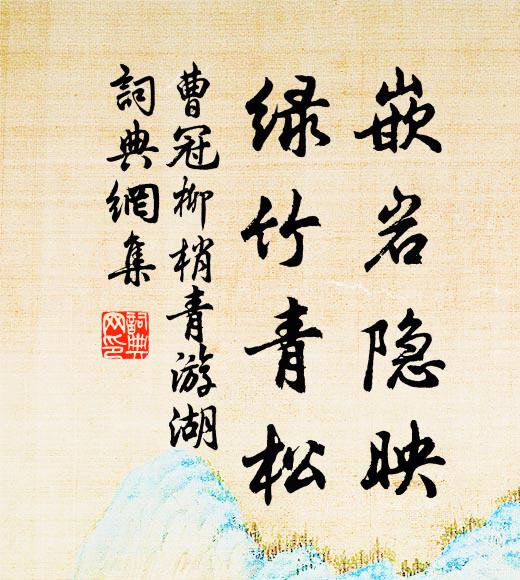 嵌岩隐映
绿竹青松
曹冠柳梢青游湖
詞典網集
詞典网印